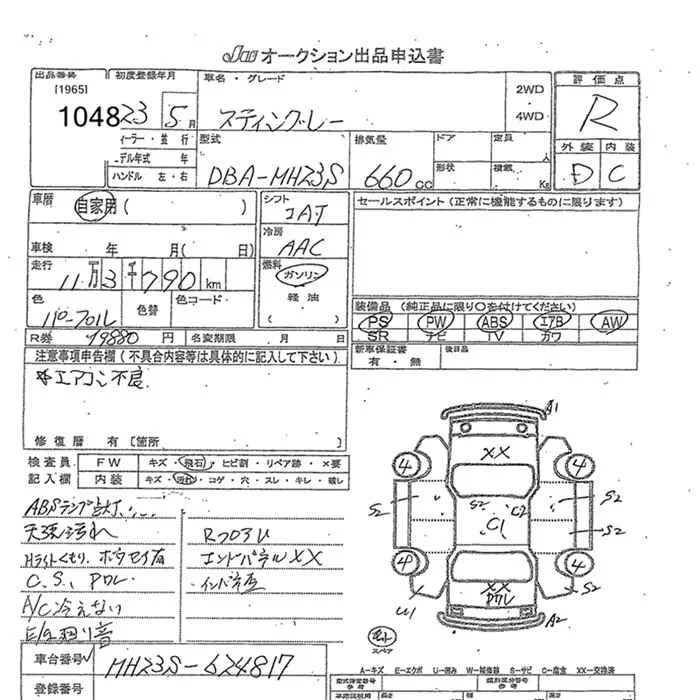 JAA オークション出品申込書
出品番号 初度登録年月 車名・グレード 評価点
[1965] 2WD
1048 23 5月 スティングレー 4WD R
ィーラー・並行 型式 排気量 ドア 定員 外装 内装
デル年式 年 人
ハンドル 左・右 DBA-MH23S 660cc 形状 積載 Kg D C
車暦 自家用 ( ) シフト セールスポイント (正常に機能するものに限ります)
冷房
車検 年 月( 日) AAC
走行 燃料
11万3千790km ガソリン
色 色替 色コード 軽油
( )
装備品 (純正品に限り○を付けてください)
PS PW ABS エアB AW
R券 9880円 名変期限 月 日 SR ナビ TV カワ
注意事項申告欄 (不具合内容等は具体的に記入して下さい) 新車保証書 後日品
有・無
*エアコン不良
修復暦 有 [箇所 ]
検査員 FW キズ・飛石・ヒビ割・リペア跡・×要
記入欄 内装 キズ・汚れ・コゲ・穴・スレ・キレ・破レ
ABSランプ点灯
天張汚れ Rフロアし
Hライトくもり、ボウセイ有 エンドパネルXX
C.S、Pワレ
A/C冷えない
E/G廻り音
A1
XX
4 4
S2 S2 C2 S2
C1 S2
4 4
XX
Pワレ S2
W1 A2
スペア
車台番号 MH23S-624817
A-キズ E-エクボ U-凹み W-補修跡 S-サビ C-腐食 XX-交換済
登録番号 型式指定番号 類別区分番号
参考 参考
長さ 幅 高さ